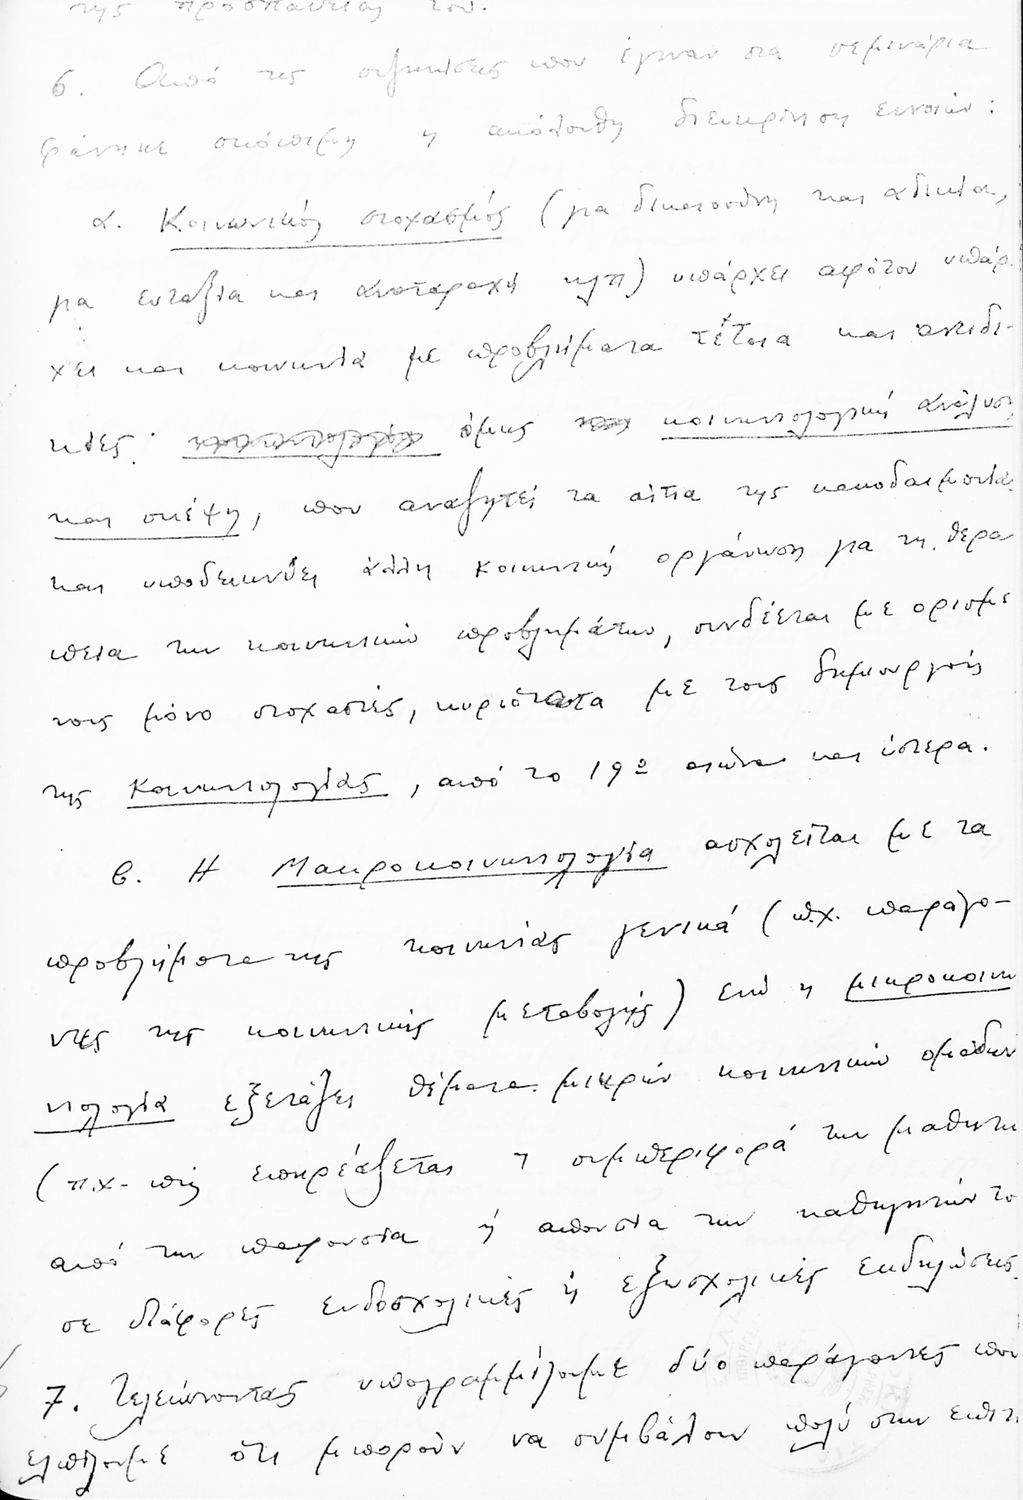 της προσπαθείας του.
6. Από τις συζητήσεις που έγιναν στα σεμινάρια
φάνηκε σκόπιμη η ακόλουθη διευκρίνιση εννοιών:
α. Κοινωνικός στοχασμός (για δικαιοσύνη και αδικία,
για ευταξία και αναταραχή κλπ) υπάρχει αφότου υπάρ-
χει και κοινωνία με προβλήματα τέτοια και αντιδι-
κίες· όμως κοινωνιολογική ανάλυση
και σκέψη, που αναζητεί τα αίτια της κακοδαιμονίας
και υποδεικνύει άλλη κοινωνική οργάνωση για τη θερα
πεία των κοινωνικών προβλημάτων, συνδέεται με ορισμέ
νους μόνο στοχαστές, κυριότατα με τους δημιουργούς
της Κοινωνιολογίας, από το 19ο αιώνα και ύστερα.
β. Η Μακροκοινωνιολογία ασχολείται με τα
προβλήματα της κοινωνίας γενικά (π.χ. παράγο-
ντες της κοινωνικής μεταβολής) ενώ η μικροκοινω
νιολογία εξετάζει θέματα μικρών κοινωνικών ομάδων
(π.χ- πώς επηρεάζεται η συμπεριφορά των μαθητών
από την παρουσία ή απουσία των καθηγητών το
σε διάφορες ενδοσχολικές ή εξωσχολικές εκδηλώσεις.
7. Τελειώνοντας υπογραμμίζουμε δύο παράγοντες που
ελπίζουμε ότι μπορούν να συμβάλουν πολύ στην επιτ